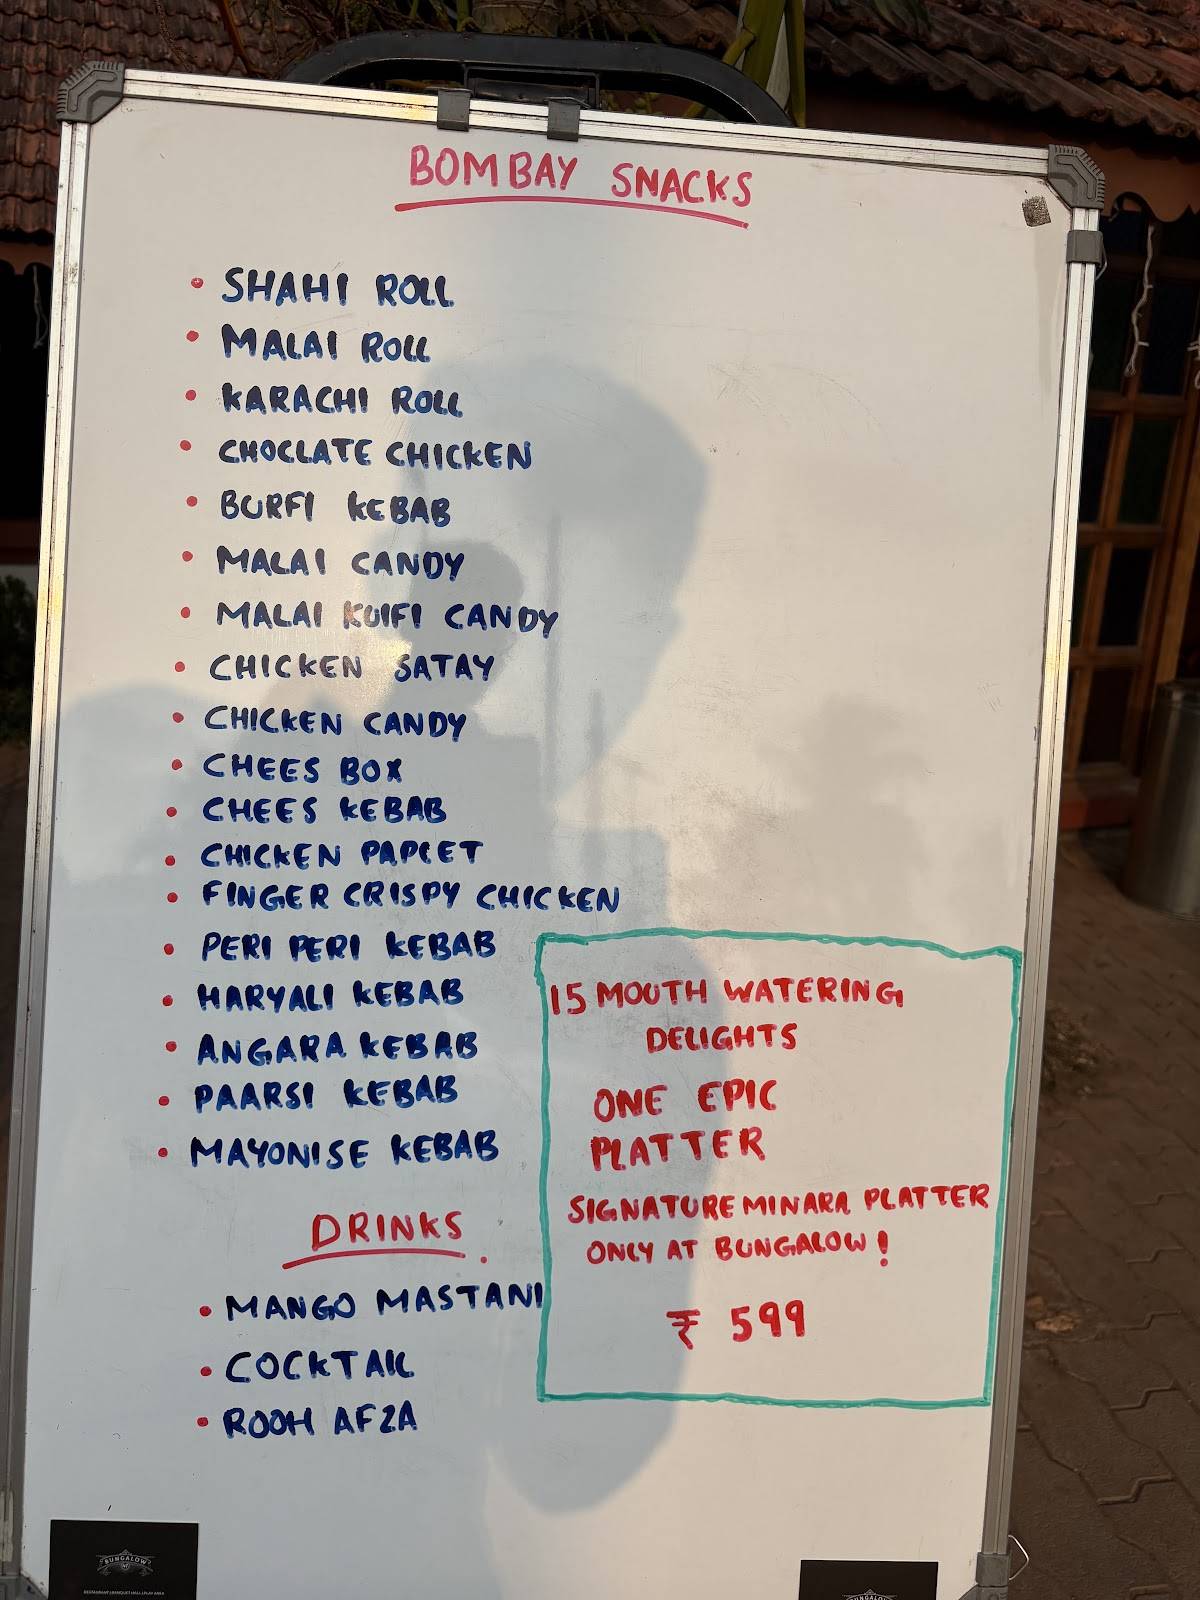 BOMBAY SNACKS
• SHAHI ROLL
• MALAI ROLL
• KARACHI ROLL
• CHOCLATE CHICKEN
• BURFI KEBAB
• MALAI CANDY
• MALAI KULFI CANDY
• CHICKEN SATAY
• CHICKEN CANDY
• CHEES BOX
• CHEES KEBAB
• CHICKEN PAPLET
• FINGER CRISPY CHICKEN
• PERI PERI KEBAB
• HARYALI KEBAB
• ANGARA KEBAB
• PAARSI KEBAB
• MAYONISE KEBAB
DRINKS
• MANGO MASTANI
• COCKTAIL
• ROOH AFZA
15 MOUTH WATERING
DELIGHTS
ONE EPIC
PLATTER
SIGNATURE MINARA PLATTER
ONLY AT BUNGALOW!
₹ 599
BUNGALOW
RESTAURANT | BANQUET HALL | PLAY AREA
BUNGALOW